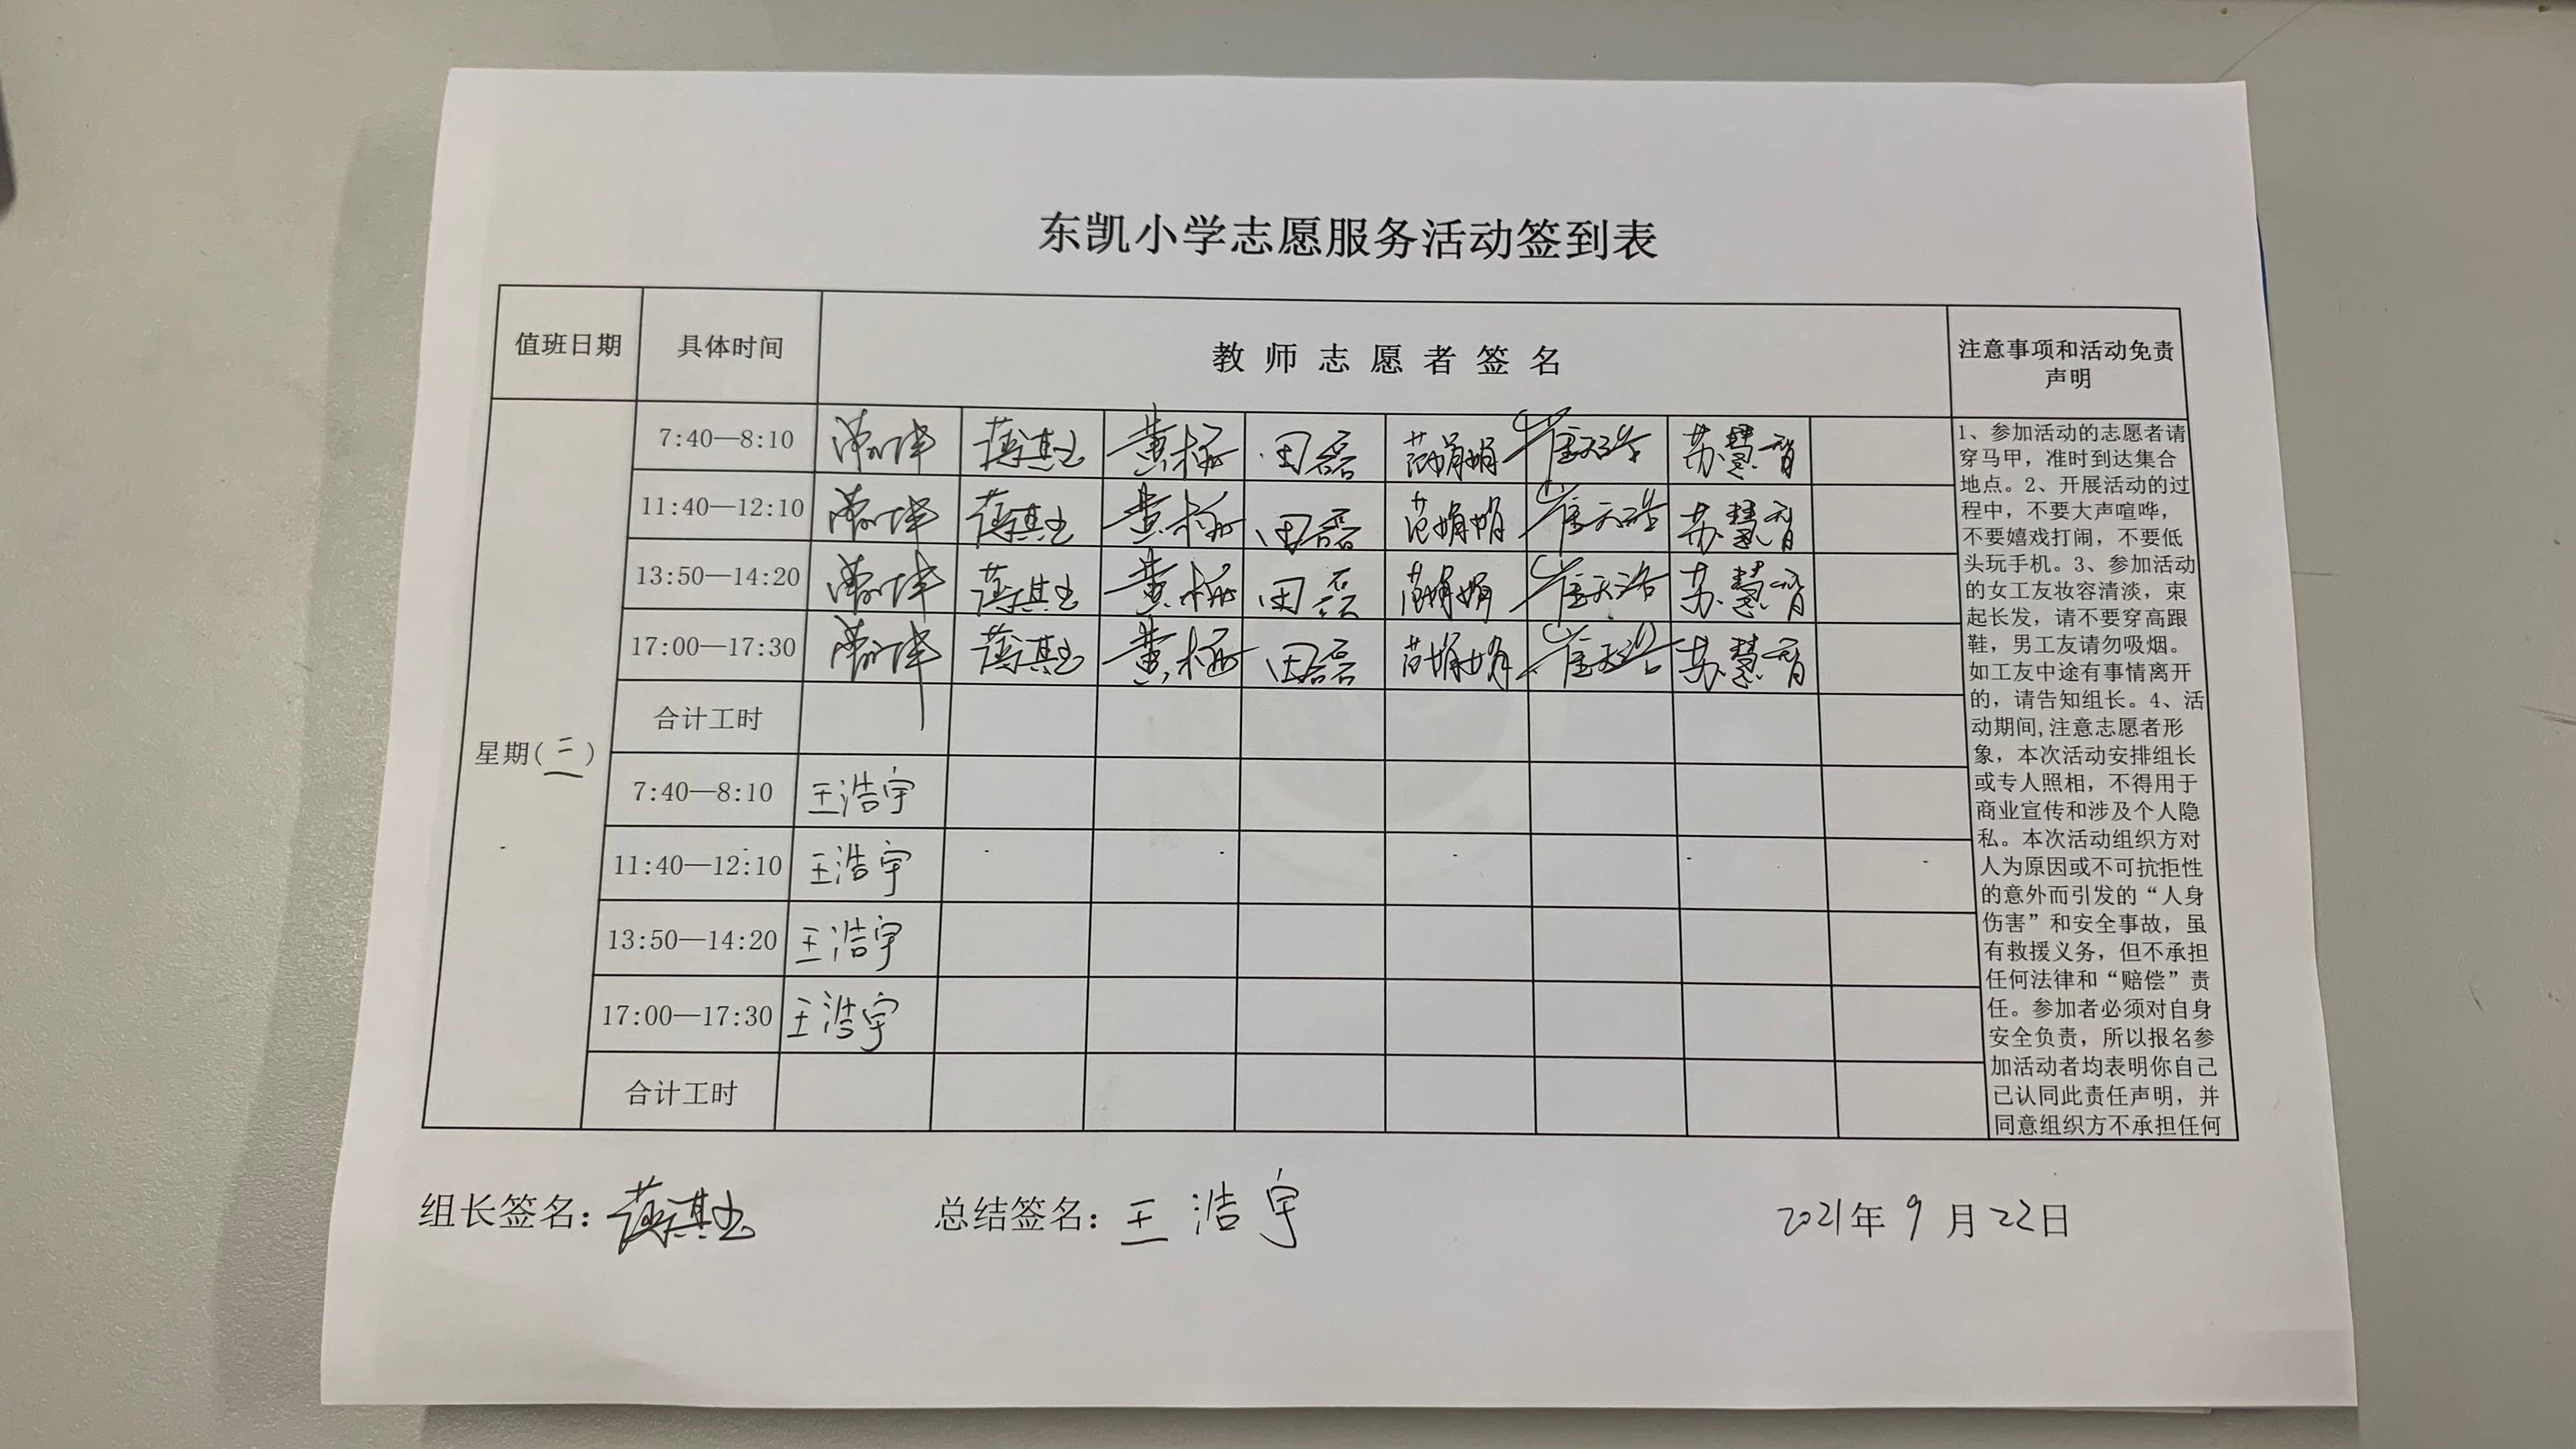 东凯小学志愿服务活动签到表
值班日期 具体时间 教师志愿者签名 注意事项和活动免责声明
星期(三)
7:40—8:10 黄梅 田磊 范娟娟 崔天浩 苏慧智
11:40—12:10 黄梅 田磊 范娟娟 崔天浩 苏慧智
13:50—14:20 黄梅 田磊 范娟娟 崔天浩 苏慧智
17:00—17:30 黄梅 田磊 范娟娟 崔天浩 苏慧智
合计工时
7:40—8:10 王浩宇
11:40—12:10 王浩宇
13:50—14:20 王浩宇
17:00—17:30 王浩宇
合计工时
1、参加活动的志愿者请
穿马甲，准时到达集合
地点。2、开展活动的过
程中，不要大声喧哗，
不要嬉戏打闹，不要低
头玩手机。3、参加活动
的女工友妆容清淡，束
起长发，请不要穿高跟
鞋，男工友请勿吸烟。
如工友中途有事情离开
的，请告知组长。4、活
动期间,注意志愿者形
象，本次活动安排组长
或专人照相，不得用于
商业宣传和涉及个人隐
私。本次活动组织方对
人为原因或不可抗拒性
的意外而引发的“人身
伤害”和安全事故，虽
有救援义务，但不承担
任何法律和“赔偿”责
任。参加者必须对自身
安全负责，所以报名参
加活动者均表明你自己
已认同此责任声明，并
同意组织方不承担任何
组长签名： 总结签名：王浩宇 2021年9月22日